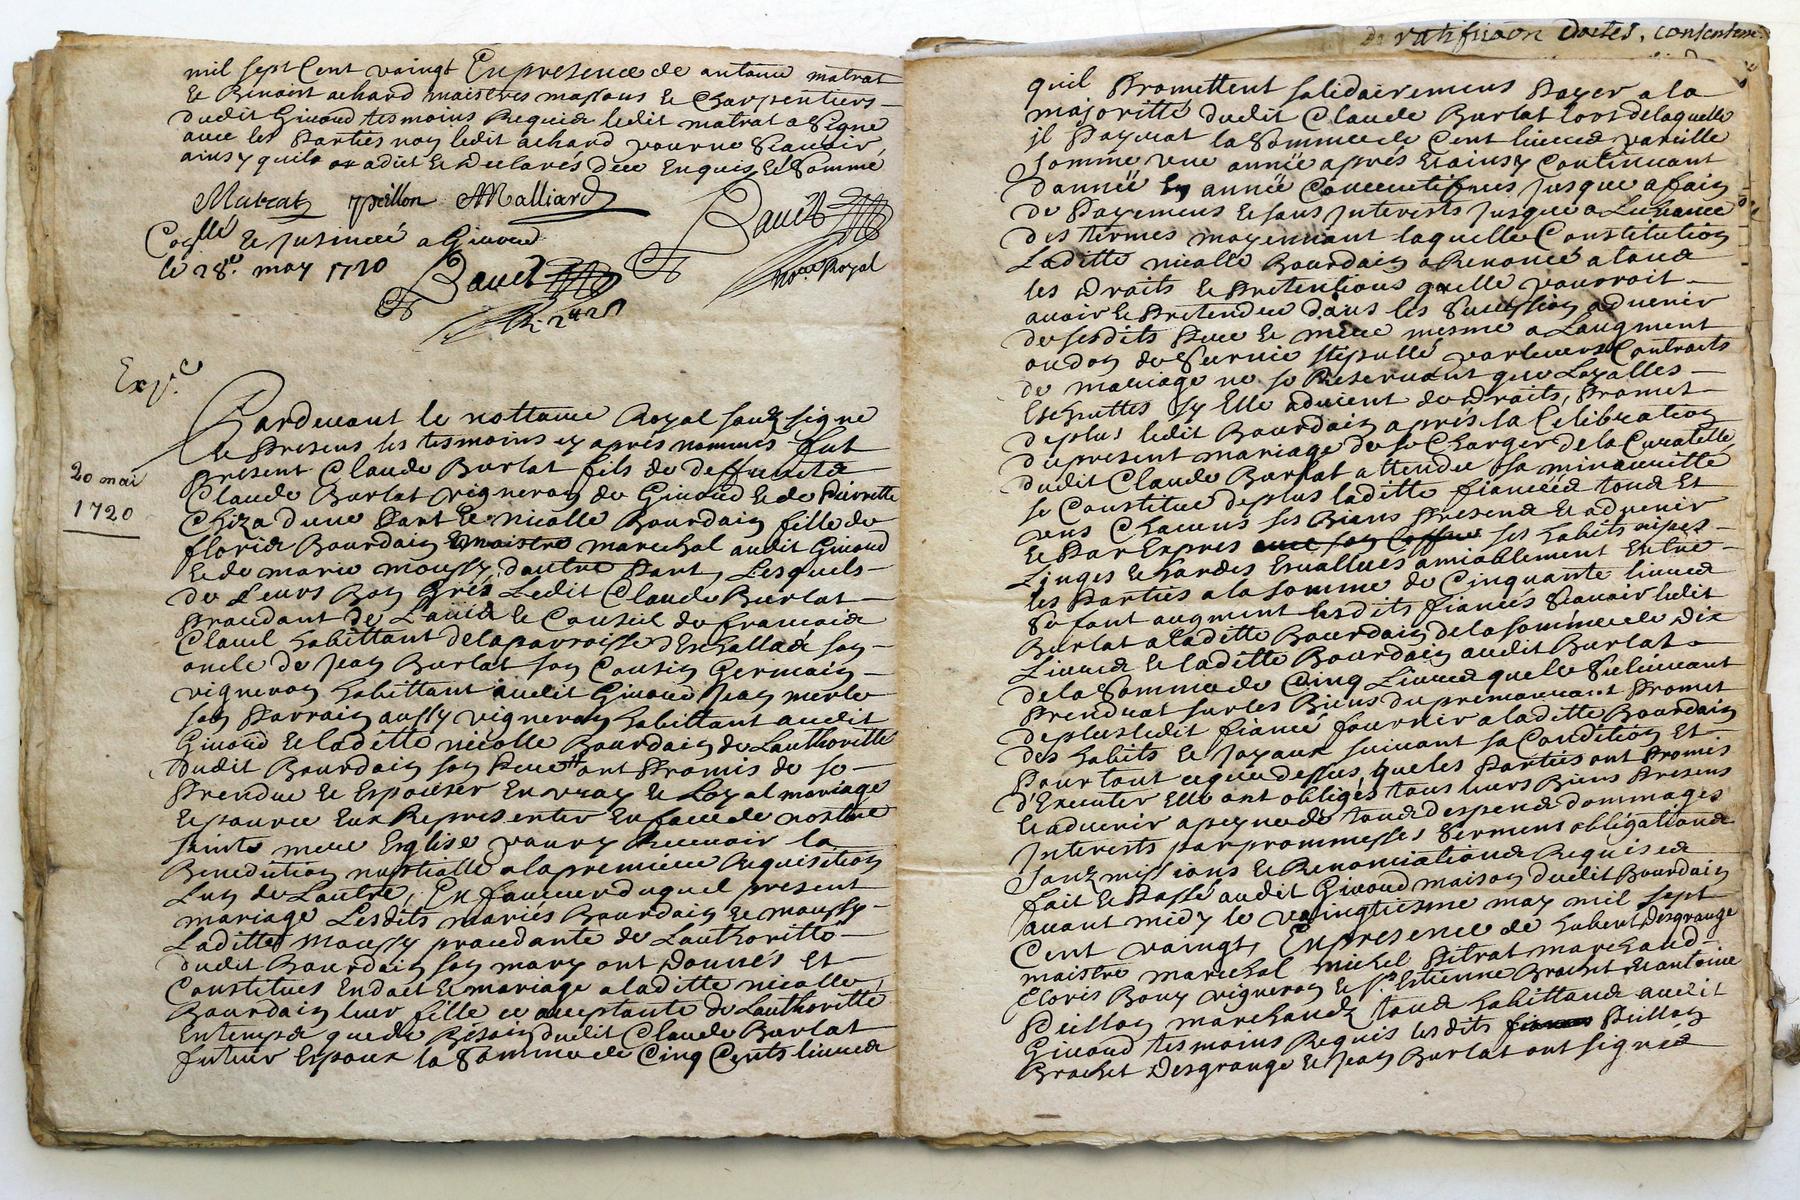 mil sept Cent vaingt En presence de antoine matrat
Et Benoist achard maistres massons Et Charpentiers
dudit Givord tesmoins Requis ledit matrat a Signé
avec les Parties non ledit achard pour ne Scavoir
ainsy quil a dit Et declarés de ce Enquis Et Sommé
Matrat pillon Malliard
Banet
Collé Et Justincé a Givord
le 28e. may 1720
Banet
nore Royal
R. 2# 2s
Exp.e
Pardevant le nottaire Royal souz signe
Et Presens les tesmoins cy aprés nommés fut
Present Claude Burlat fils de deffunct
Claude Burlat vigneron de Givord Et de Pierrette
Chiza dune Part Et nicolle Bourdain fille de
20 mai
1720
floris Bourdain maistre marechal audit Givord
Et de marie moussy, dautre Part, Lesquels
de Leurs Bon Grés Ledit Claude Burlat
Procedant de Lavis Et Conseil de francois
Clavel habittant de la parroisse dEschallas son
oncle de Jean Burlat son Cousin Germain
vigneron habittant audit Givord Jean merle
son Parrain aussy vigneron habittant audit
Givord Et laditte nicolle Bourdain de Lauthoritté
dudit Bourdain son Pere ont Promis de se
Prendre Et Espouser En vray Et Loyal mariage
Et pour ce Eux Representer En face de nostre
sainte mere Esglise pour y Recevoir la
Benediction nuptialle a la premiere Requisition
Lun de Lautre, En faveur duquel present
mariage Lesdits mariés Bourdain Et moussy
Laditte Moussy procedante de Lauthoritté
dudit Bourdain son mary ont Donnés Et
Constitués En dot Et mariage a laditte nicolle
Bourdain leur fille ce acceptante de Lauthoritté
En temps que de Besoin dudit Claude Burlat
futur Espoux la Somme de Cinq Cents livres
de ratifficaon Dottes, consentem
quil Promettent solidairement Payer a la
majoritté dudit Claude Burlat lors de laquelle
il Payerat la Somme de Cent livres pareille
Somme une année aprés Et ainsy Continuant
dannée En année Consecutifves jusque a fain
de Payement Et sans jnterests jusque a Lecheance
des termes moyennant laquelle Constitution
Laditte nicolle Bourdain a Renoncé a tous
les Droits Et Pretentions quelle pourroit
avoir Et Pretendre dans les Succession advenir
de sesdits Pere Et mere mesme a Laugment
ou don de Survie stipullé par leurs Contracts
de mariage ne se Reservant que Loyalles
Escheuttes sy Elle advient de droits, Promet
de plus ledit Bourdain aprés la Celebration
du present mariage de se Charger de la Curatelle
dudit Claude Burlat attendu sa minoritte
se Constitue de plus laditte fiancée tous Et
uns Chacuns ses Biens Presens Et advenir
Et Par Expres ses habits nipes
Linges Et hardes Evallues amiablement Entre
les Parties a la somme de Cinquante livres
Se font augment lesdits fiancés Scavoir ledit
Burlat a laditte Bourdain de la somme de Dix
Livres Et laditte Bourdain audit Burlat
de la Somme de Cinq Livres que le Survivant
Prendrat sur les Biens du premourant Promet
de plus ledit fiancé fournir a laditte Bourdain
des habits Et Joyaux suivant sa Condition Et
Pour tout ce que dessus, que les Parties ont Promis
d'Executer Elle ont obligés tous leurs Biens Presens
Et advenir a peyne de tous despens dommages
Jnterests par prommesses Serment obligations
Souzmissions Et Renonciations Requises
fait Et Passé audit Givord maison dudit Bourdain
avant midy le vaingtiesme may mil sept
Cent vaingt, En presence de hubert Desgrange
maistre marechal michel Pitrat marchand
Cloris Bouy vigneron Et St Estienne Brachet Et antoine
Peillon marchandz tous habittans audit
Givord tesmoins Requis lesdits Peillon
Brachet Desgrange Et Jean Burlat ont signés